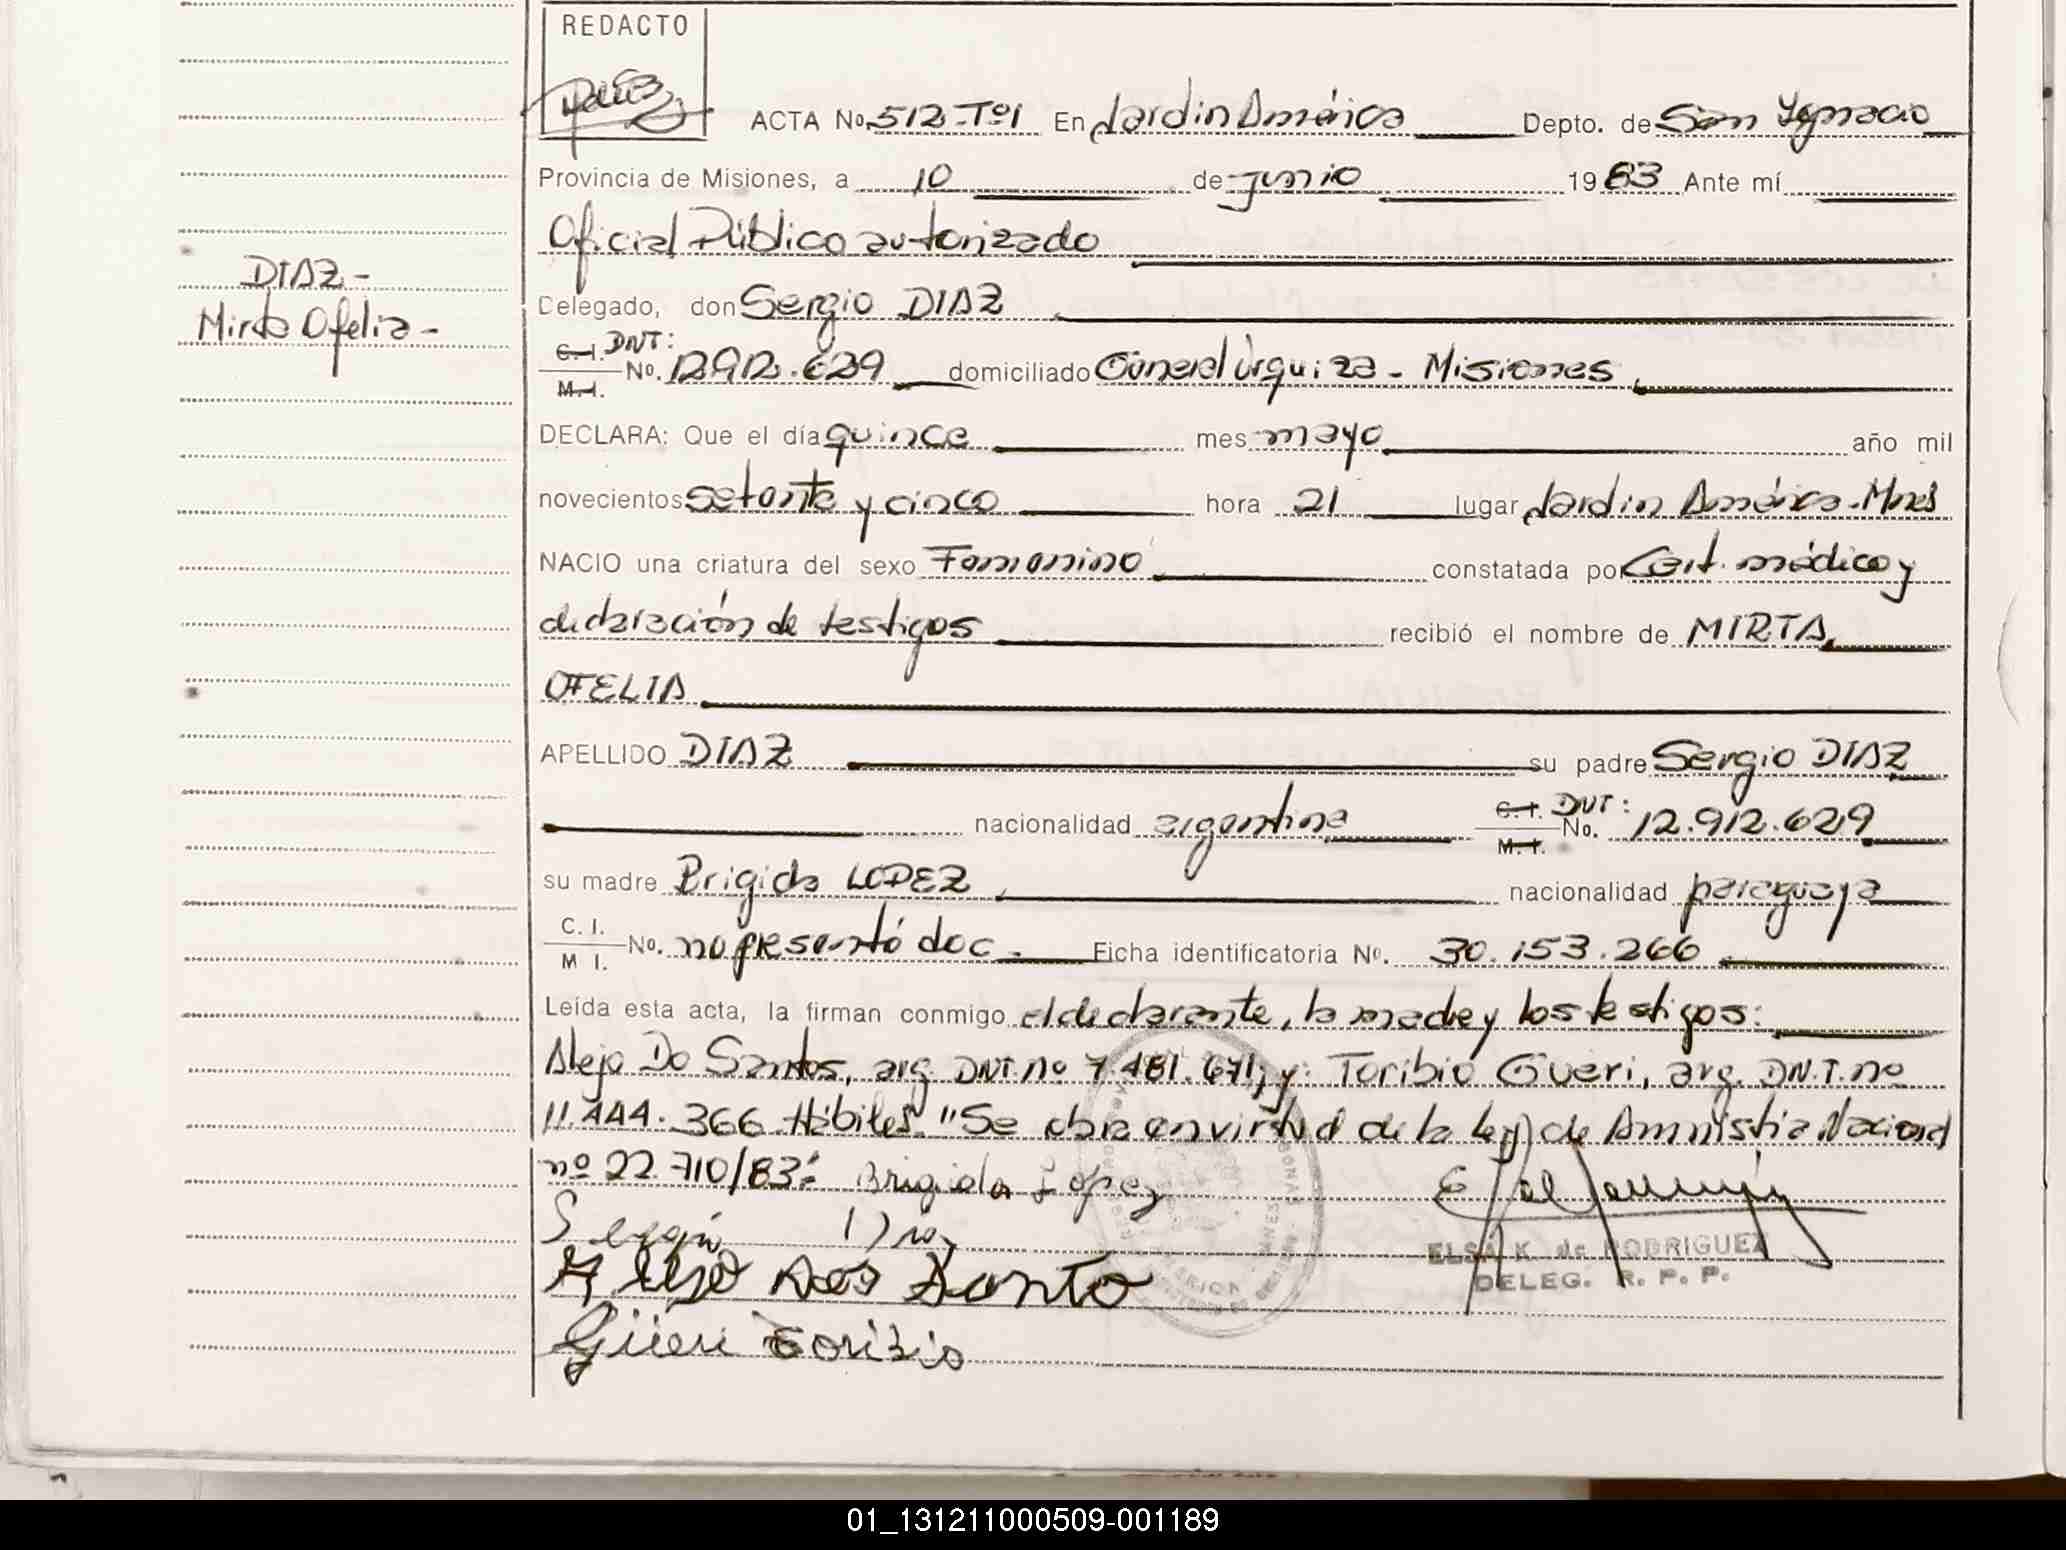 REDACTO
ACTA No. 512-Tº1 En Jardin América Depto. de San Ygnacio
Provincia de Misiones, a 10 de junio 1983 Ante mí
Oficial Público autorizado
DIAZ-
Mirta Ofelia-
Delegado, don Sergio DIAZ
C.I. DNI:
M.I. No. 12.912.629 domiciliado General Urquiza - Misiones
DECLARA: Que el día quince mes mayo año mil
novecientos setenta y cinco hora 21 lugar Jardin América-Mnes
NACIO una criatura del sexo Femenino constatada por Cert. médico y
declaración de testigos recibió el nombre de MIRTA
OFELIA
APELLIDO DIAZ su padre Sergio DIAZ
nacionalidad argentina C.I. DNI: M.I. No. 12.912.629
su madre Brigida LOPEZ nacionalidad paraguaya
C. I.
M I. No. no presentó doc. Ficha identificatoria Nº. 30.153.266
Leída esta acta, la firman conmigo el declarante, la madre y los testigos:
Alejo Do Santos, arg. DNI. nº 7.481.671, y: Toribio Güeri, arg. DN.I. nº
11.444.366 Hábiles. "Se labra en virtud de la ley de Amnistia Nacional
nº 22.710/83" Brigida Lopez
Sergio Diaz
Alejo Dos Santo
ELSA K. de RODRIGUEZ
DELEG. R. P. P.
Güeri Toribio
01_131211000509-001189